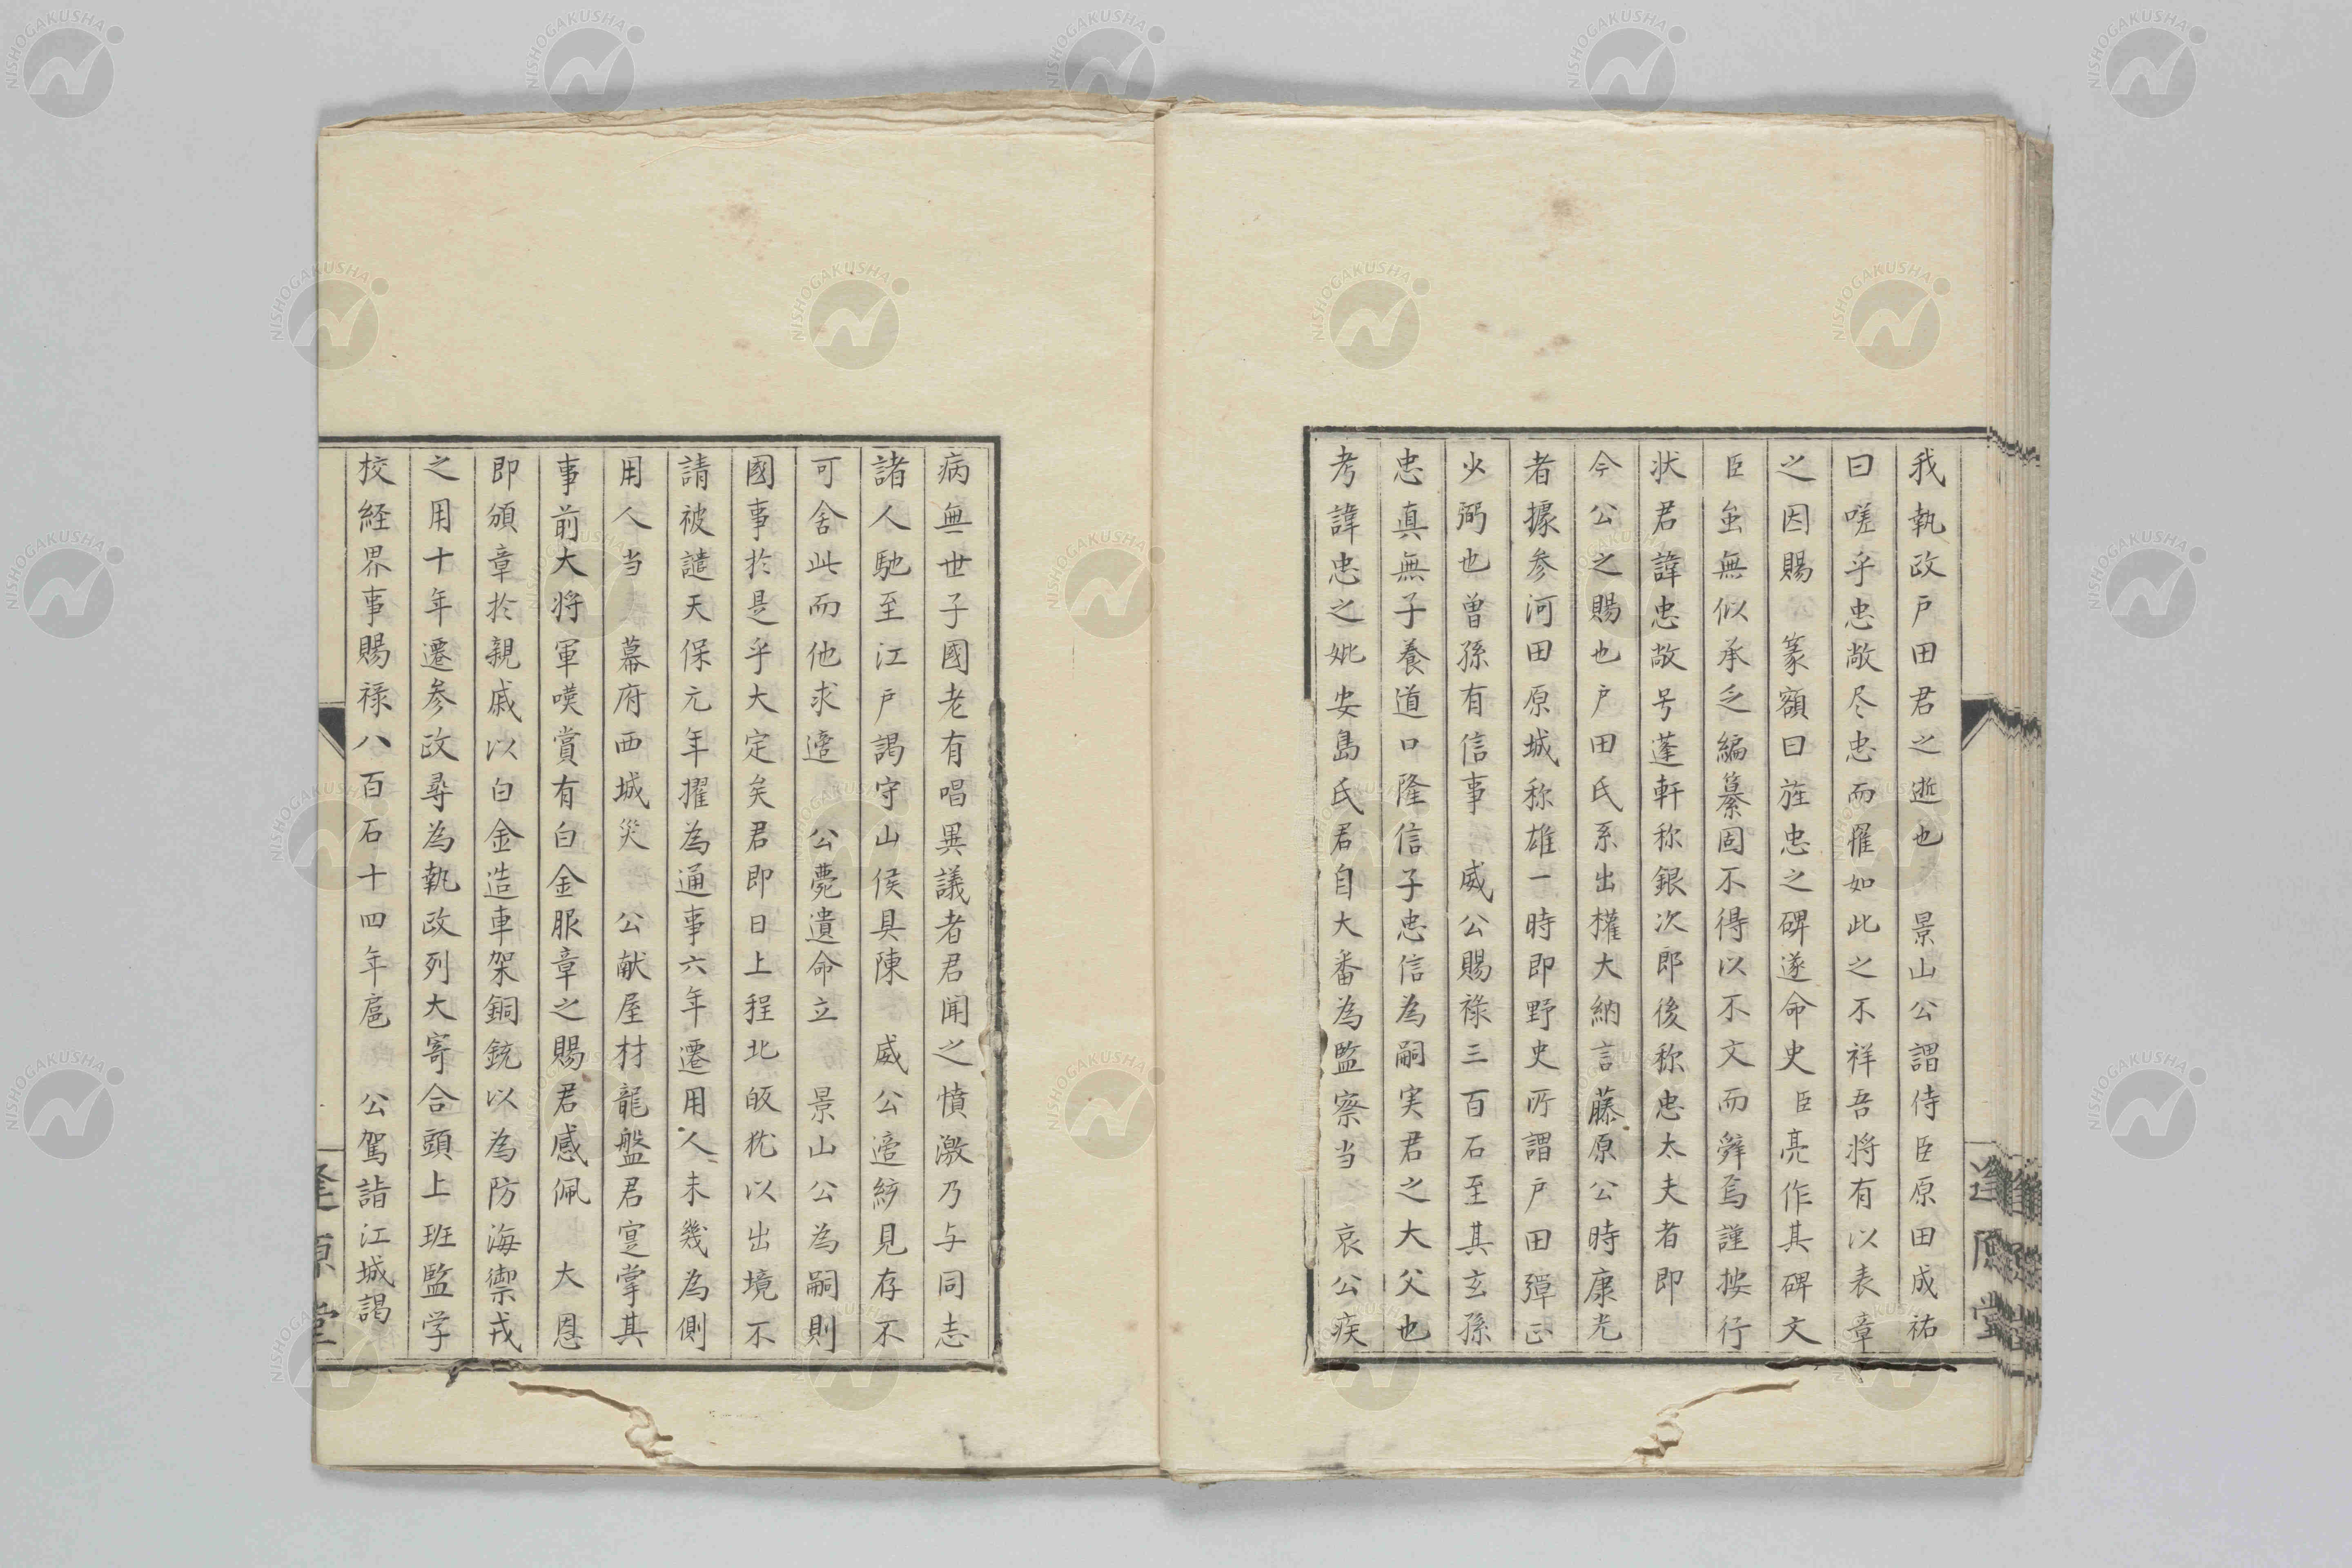 我執政戸田君之逝也　景山公謂侍臣原田成祐
曰嗟乎忠敞尽忠而罹如此之不祥吾将有以表章
之因賜　篆額曰旌忠之碑遂命史臣亮作其碑文
臣虽無似承乏編纂固不得以不文而辞焉謹按行
状君諱忠敞号蓬軒称銀次郎後称忠太夫者即
今公之賜也戸田氏系出権大納言藤原公時康光
者據参河田原城称雄一時即野史所謂戸田弾正
少弼也曽孫有信事　威公賜禄三百石至其玄孫
忠真無子養道口隆信子忠信為嗣実君之大父也
考諱忠之妣安島氏君自大番為監察当　哀公疾
病無世子國老有唱異議者君聞之憤激乃与同志
諸人馳至江戸謁守山侯具陳　威公遺胤見存不
可舍此而他求適　公薨遺命立　景山公為嗣則
國事於是乎大定矣君即日上程北皈犹以出境不
請被譴天保元年擢為通事六年遷用人未幾為側
用人当　幕府西城災　公献屋材龍盤君寔掌其
事前大将軍嘆賞有白金服章之賜君感佩　大恩
即頒章於親戚以白金造車架銅銃以為防海禦戎
之用十年遷参政尋為執政列大寄合頭上班監学
校経界事賜禄八百石十四年扈　公駕詣江城謁
逢原堂
逢原堂
NISHOGAKUSHA